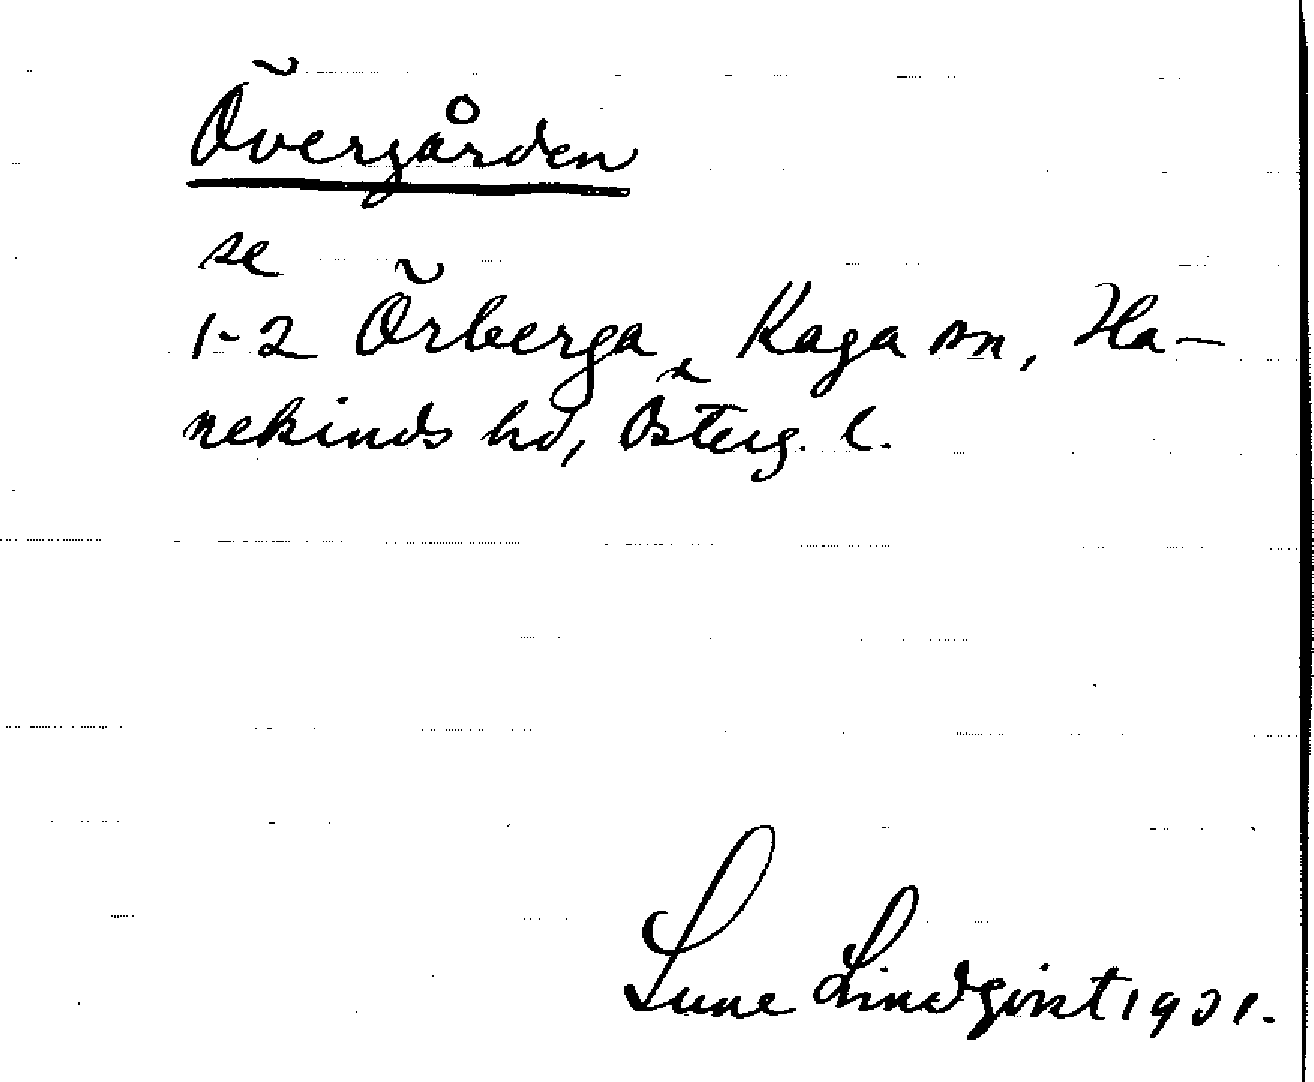 Övergården
se
1-2 Örberga, Kaga sn, Ha-
nekinds hd, Österg. l.
Sune Lindqvist 1931.